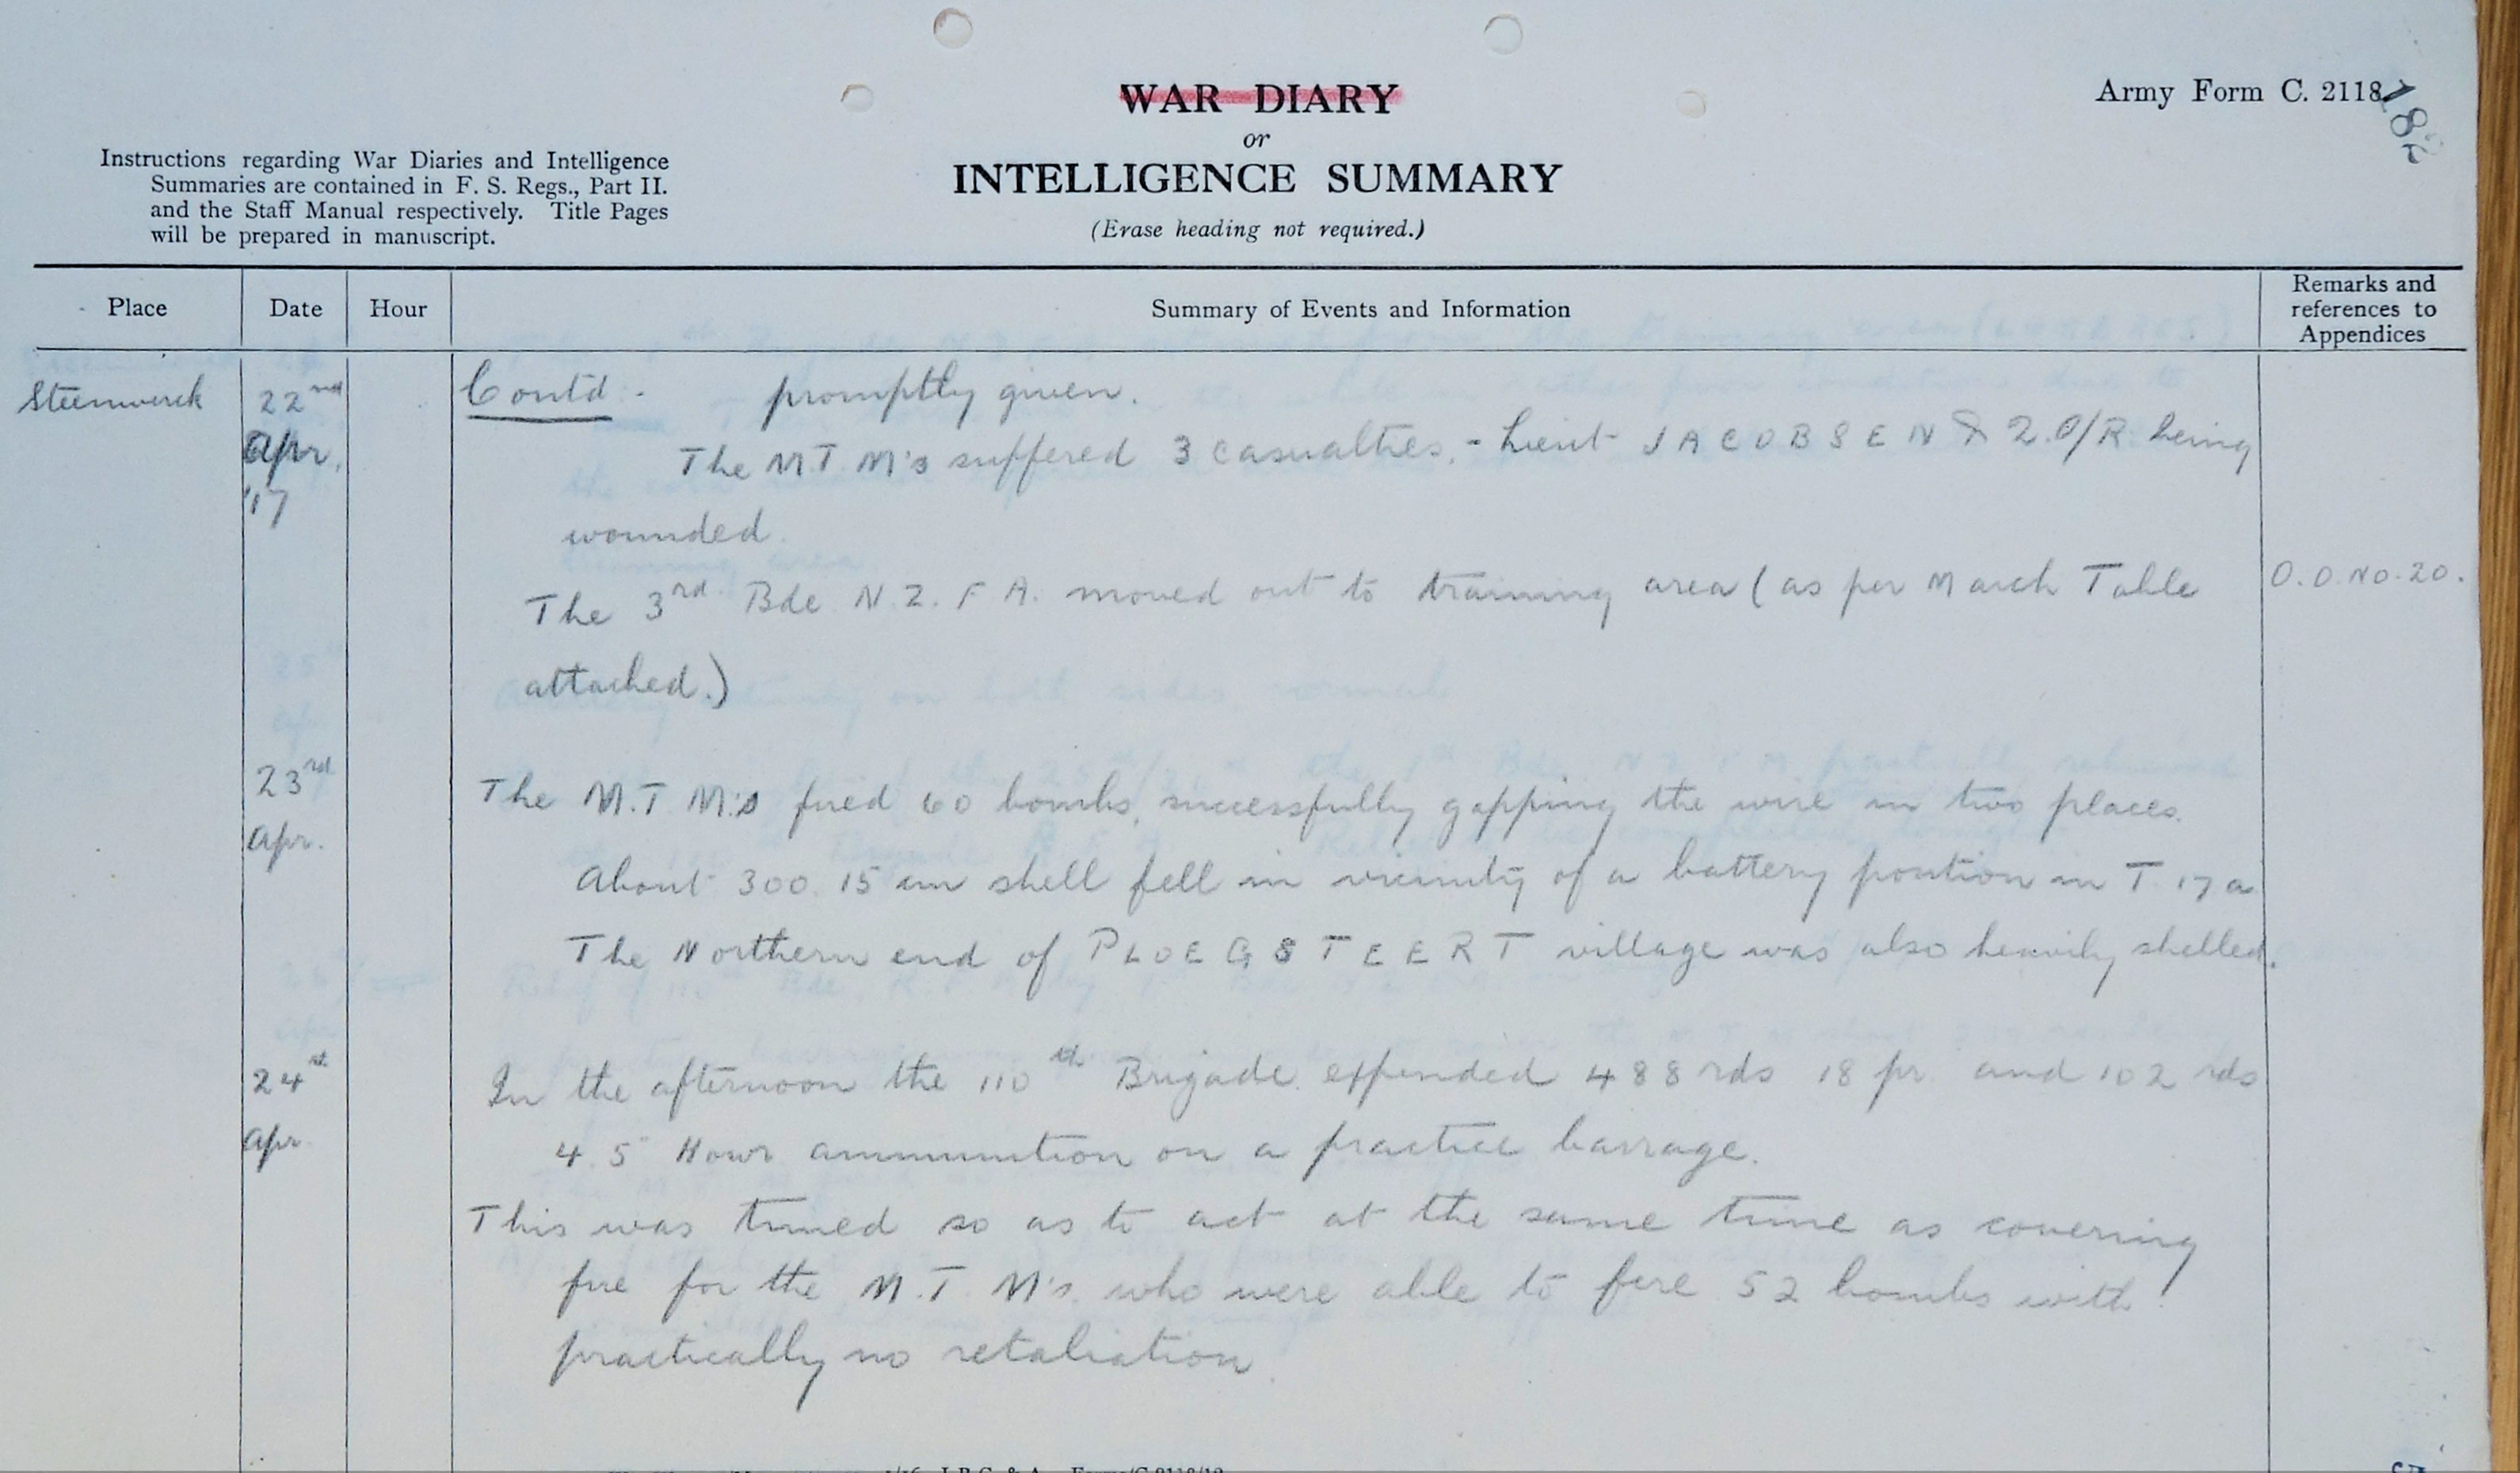 WAR DIARY
or
INTELLIGENCE SUMMARY
(Erase heading not required.)
Army Form C. 2118
182
Instructions regarding War Diaries and Intelligence
Summaries are contained in F. S. Regs., Part II.
and the Staff Manual respectively. Title Pages
will be prepared in manuscript.
Place
Date
Hour
Summary of Events and Information
Remarks and
references to
Appendices
Steenwerck
22nd
Apr.
'17
Contd - promptly given.
The M.T.M's suffered 3 casualties, - Lieut JACOBSEN & 2.O/R being
wounded.
The 3rd Bde N.Z.F.A. moved out to training area (as per March Table
attached.)
O.O. No. 20.
23rd
Apr.
The M.T.M's fired 60 bombs, successfully gapping the wire in two places.
About 300. 15 cm shell fell in vicinity of a battery position in T.17a
The Northern end of PLOEGSTEERT village was also heavily shelled.
24th
Apr.
In the afternoon the 110th Brigade expended 488 rds 18 pr and 102 rds
4.5" Howr ammunition on a practice barrage.
This was timed so as to act at the same time as covering
fire for the M.T.M's who were able to fire 52 bombs with
practically no retaliation